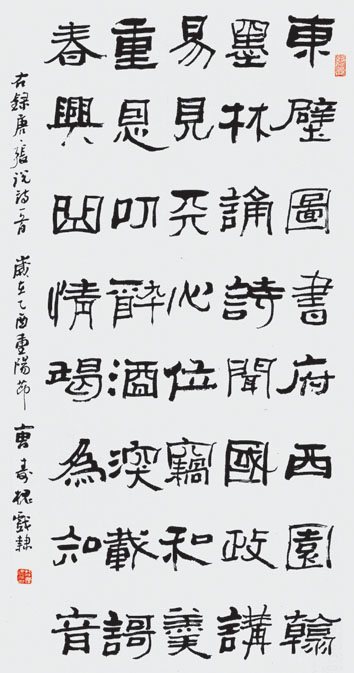 東壁圖書府西園翰
墨林誦詩聞國政講
易見天心位竊和羹
重恩叨醉酒深載謌
春興曲情竭為知音
右錄唐·張說詩一首 歲在乙酉重陽節 曹寿槐戲隸